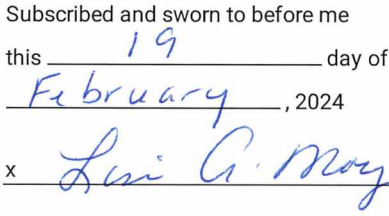 Subscribed and sworn to before me
this 19 day of
February, 2024
x Lisi A. Moy